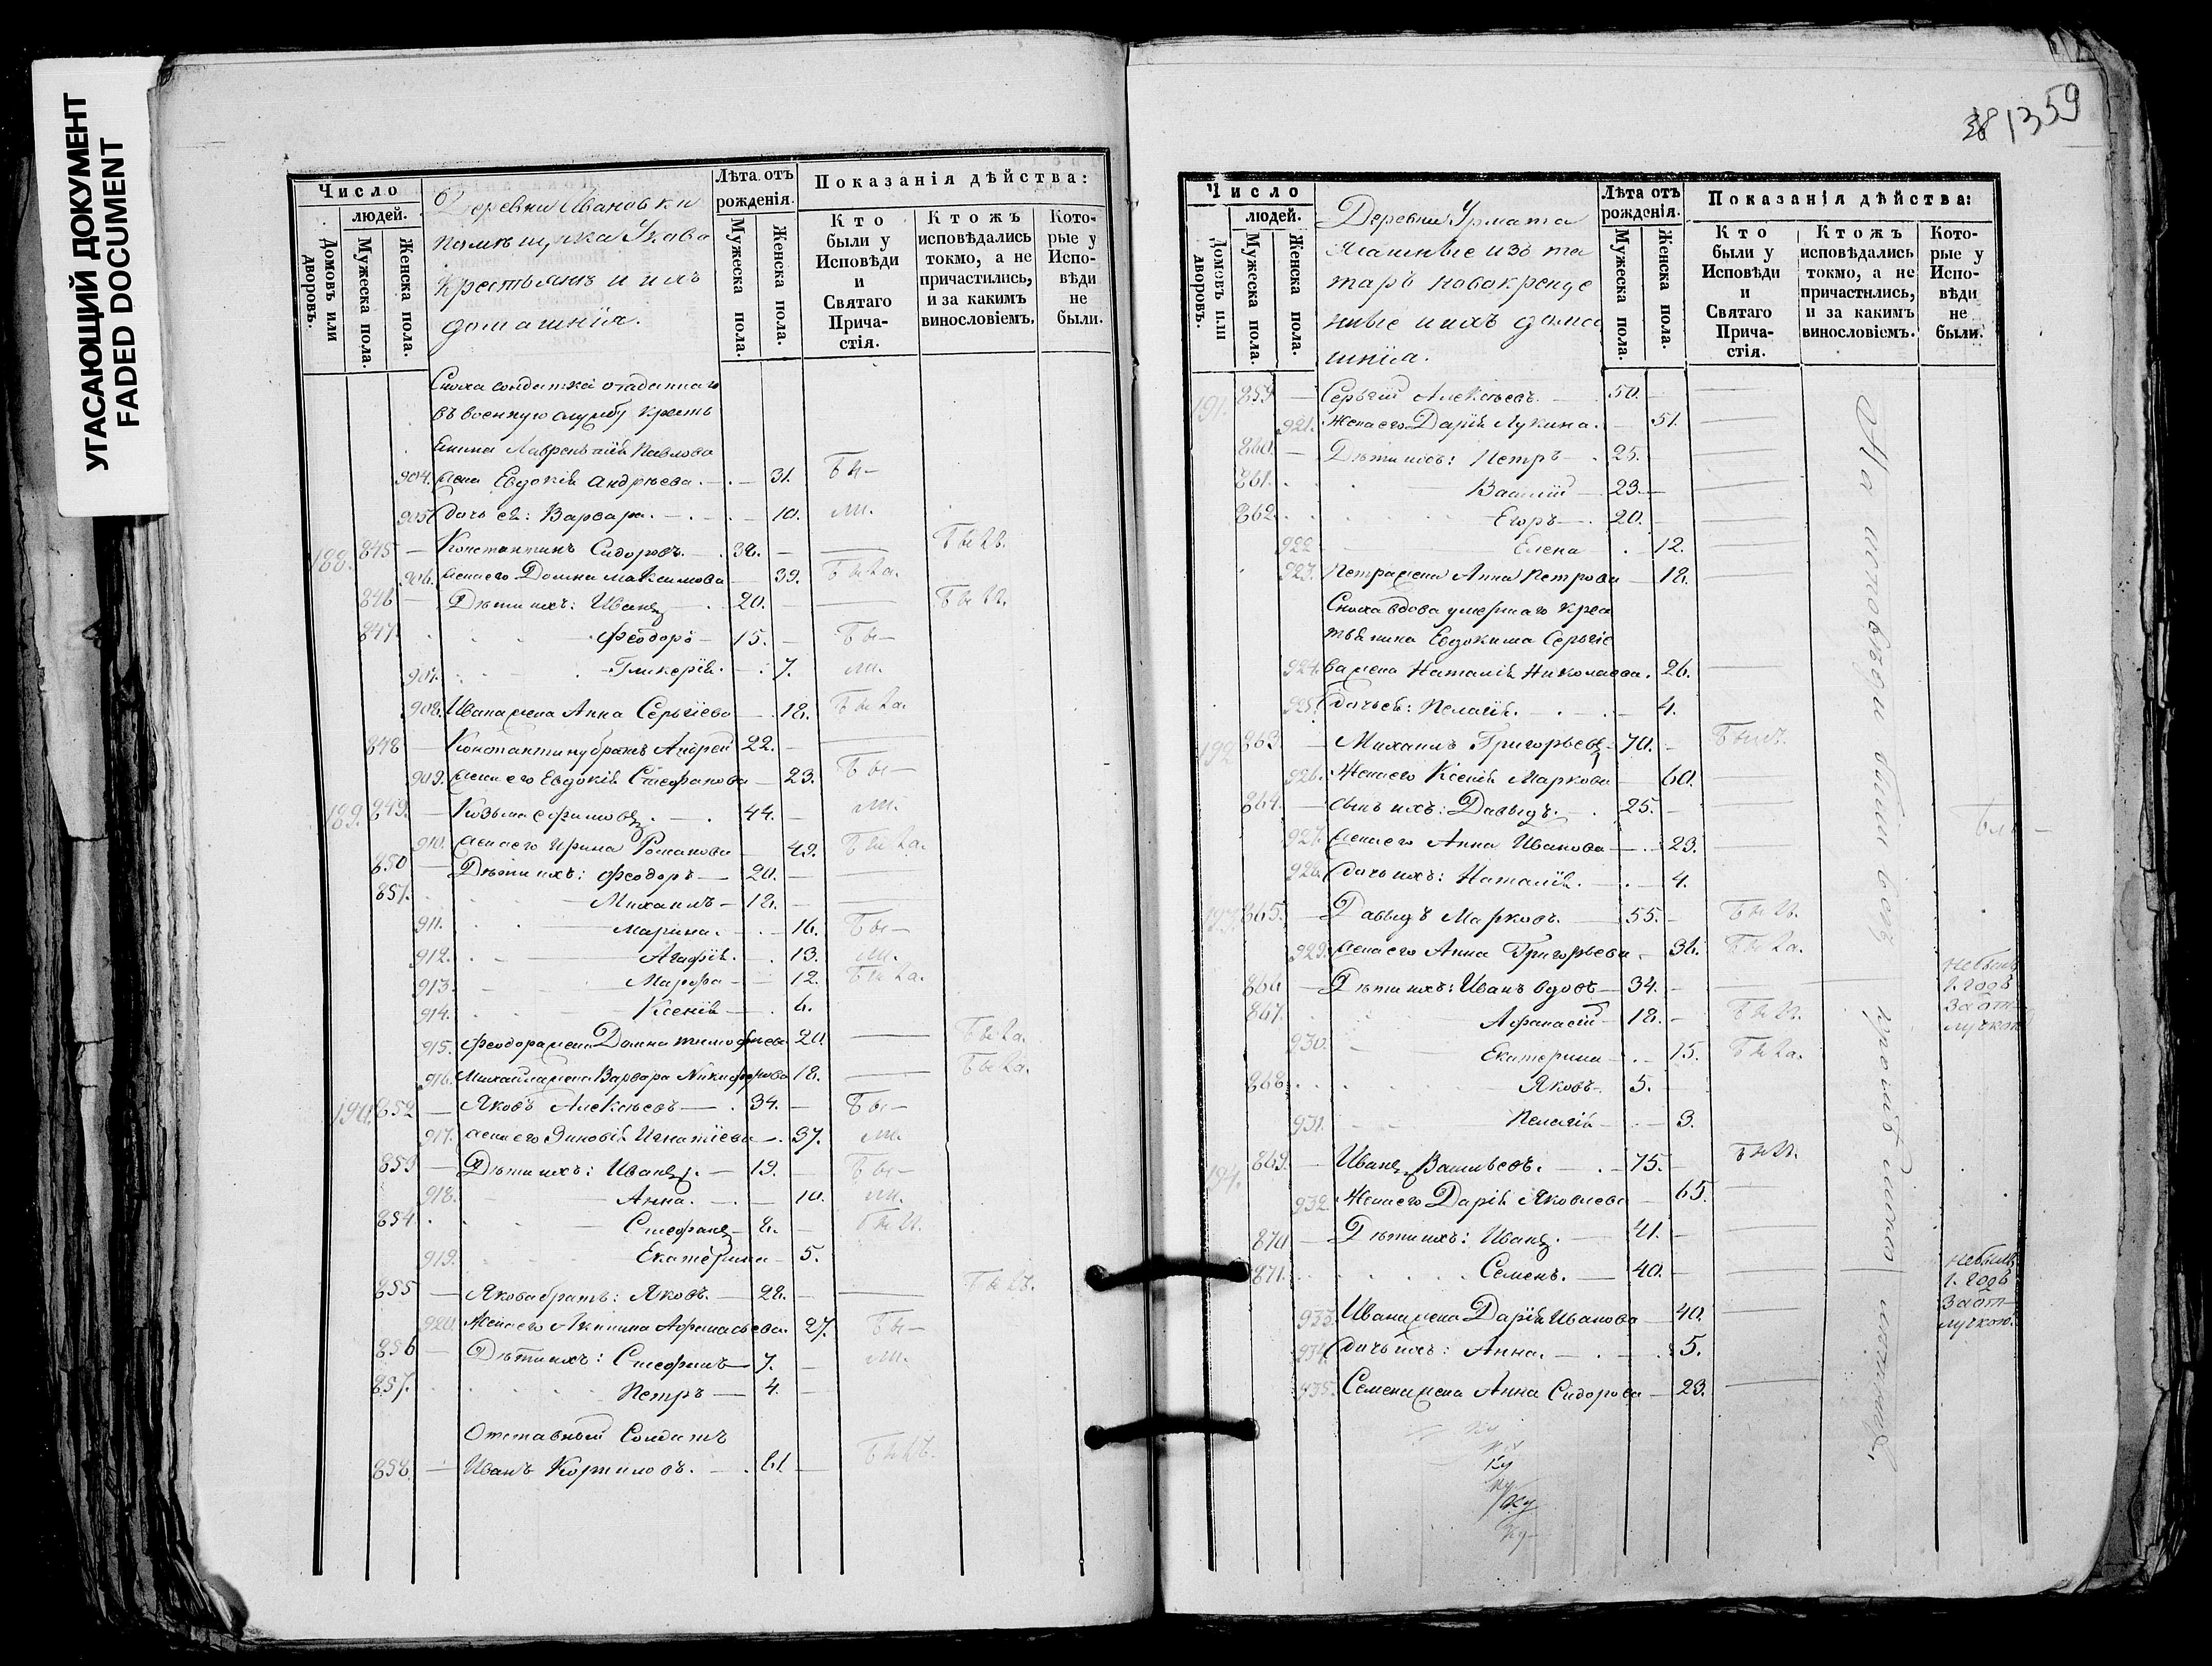 УГАСАЮЩИЙ ДОКУМЕНТ
FADED DOCUMENT
Число
людей.
Домовъ или дворовъ.
Мужеска пола.
Женска пола.
Деревни Ивановки
помѣщика
крестьянъ и ихъ
домашнія.
Лѣта отъ рожденія.
Мужеска пола.
Женска пола.
Показанія дѣйства:
Кто были у Исповѣди и Святаго Причастія.
Ктожъ исповѣдались токмо, а не причастились, и за какимъ винословіемъ.
Которые у Исповѣди не были.
Сноха солдатка отданнаго
въ военную службу кресть
янина Лаврентія Павлова
904. жена Евдокія Андрѣева. 31. бы-
905. дочь ея: Варвара. 10.
188. 845 Константинъ Сидоровъ. 38. былъ.
906. жена его Домна Максимова 39. была.
846 Дѣти ихъ: Иванъ 20. былъ.
847. Феодоръ 15. бы-
907. Гликерія. 7.
908. Ивана жена Анна Сергіева 18. была.
848 Константину братъ Андрей 22.
909. жена его Евдокія Стефанова 23. бы-
189. 849. Козьма Ефимовъ 44.
910. жена его Ирина Романова 49. была.
850 Дѣти ихъ: Феодоръ 20.
851. Михаилъ 18.
911. Марина. 16. бы-
912. Агафія. 13.
913. Марфа 12. была.
914. Ксенія 6.
915. Феодора жена Домна Тимофеева 20. была.
916. Михайла жена Варвара Никифорова 18. была.
190. 852 Яковъ Алексѣевъ 34. бы-
917. жена его Зиновія Игнатіева 37.
853 Дѣти ихъ: Иванъ 19. бы-
918. Анна. 10.
854. Стефанъ 8. былъ.
919. Екатерина 5.
855 Якова братъ: Яковъ. 28. былъ.
920. Жена его Акилина Афанасьева. 27. бы-
856 Дѣти ихъ: Стефанъ 7.
857. Петръ 4.
Отставный Солдатъ
858. Иванъ Корниловъ. 61. былъ.
1359
Число
людей.
Домовъ или дворовъ.
Мужеска пола.
Женска пола.
Деревни Урмата
Ясашные изъ та
таръ новокреще
ные и ихъ дома
шнія.
Лѣта отъ рожденія.
Мужеска пола.
Женска пола.
Показанія дѣйства:
Кто были у Исповѣди и Святаго Причастія.
Ктожъ исповѣдались токмо, а не причастились, и за какимъ винословіемъ.
Которые у Исповѣди не были.
191. 859 Сергій Алексѣевъ. 50.
921. Жена его Дарія Лукина. 51.
860. Дѣти ихъ: Петръ 25.
861. Василій 23.
862. Егоръ 20.
922 Елена 12.
923. Петра жена Анна Петрова 18.
Сноха вдова умершаго крес
тьянина Евдокима Сергіе
924. ва жена Наталія Николаева. 26.
925. дочь ея: Пелагія. 4.
192 863. Михаилъ Григорьевъ 70. былъ.
926. Жена его Ксенія Маркова 60.
864. сынъ ихъ: Давыдъ. 25.
927. жена его Анна Иванова 23.
928. дочь ихъ: Наталія. 4.
193. 865. Давыдъ Марковъ. 55. былъ.
929. жена его Анна Григорьева 36. была.
866 Дѣти ихъ: Иванъ вдовъ 34. небылъ 1. годъ за отлучкою
867. Афанасій 18. былъ.
930. Екатерина 15. была.
868. Яковъ 5.
931. Пелагія 3.
194. 869. Иванъ Васильевъ. 75. былъ.
932. Жена его Дарія Яковлева 65.
870 Дѣти ихъ: Иванъ. 41.
871. Семенъ. 40. небылъ 1. годъ за отлучкою.
933. Ивана жена Дарія Иванова 40.
934. дочь ихъ: Анна. 5.
935. Семена жена Анна Сидорова 23.
На исповѣди были